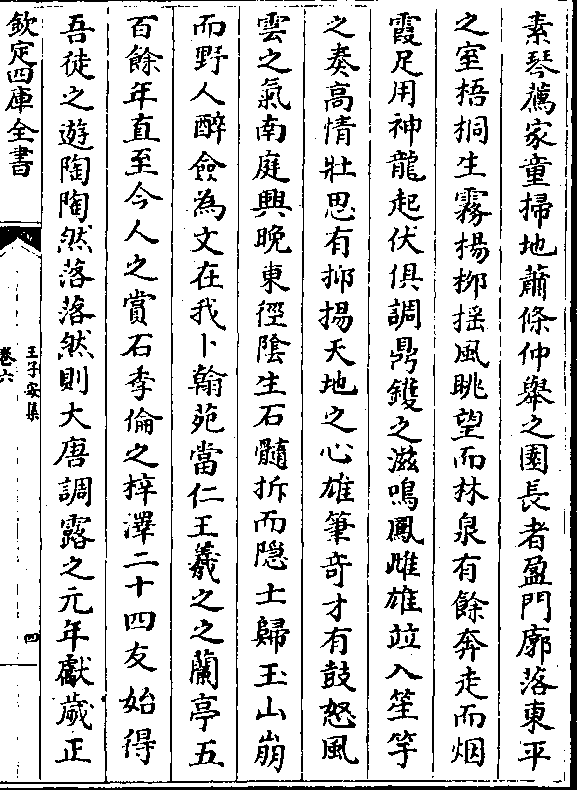 素琴薦家童掃地蕭條仲舉之園長者盈門廓落東平
之室梧桐生霧楊栁揺風眺望而林泉有餘奔走而烟
霞足用神龍起伏俱調鼎鑊之滋鳴鳳雌雄竝入笙竽
之奏高情壯思有抑揚天地之心雄筆奇才有鼓怒風
雲之氣南庭興晚東徑隂生石髓拆而隠士歸玉山崩
而野人醉僉為文在我卜翰苑當仁王羲之之蘭亭五
百餘年直至今人之賞石季倫之梓澤二十四友始得
吾徒之遊陶陶然落落然則大唐調露之元年獻歲正
欽定四庫全書
王子安集
卷六
四